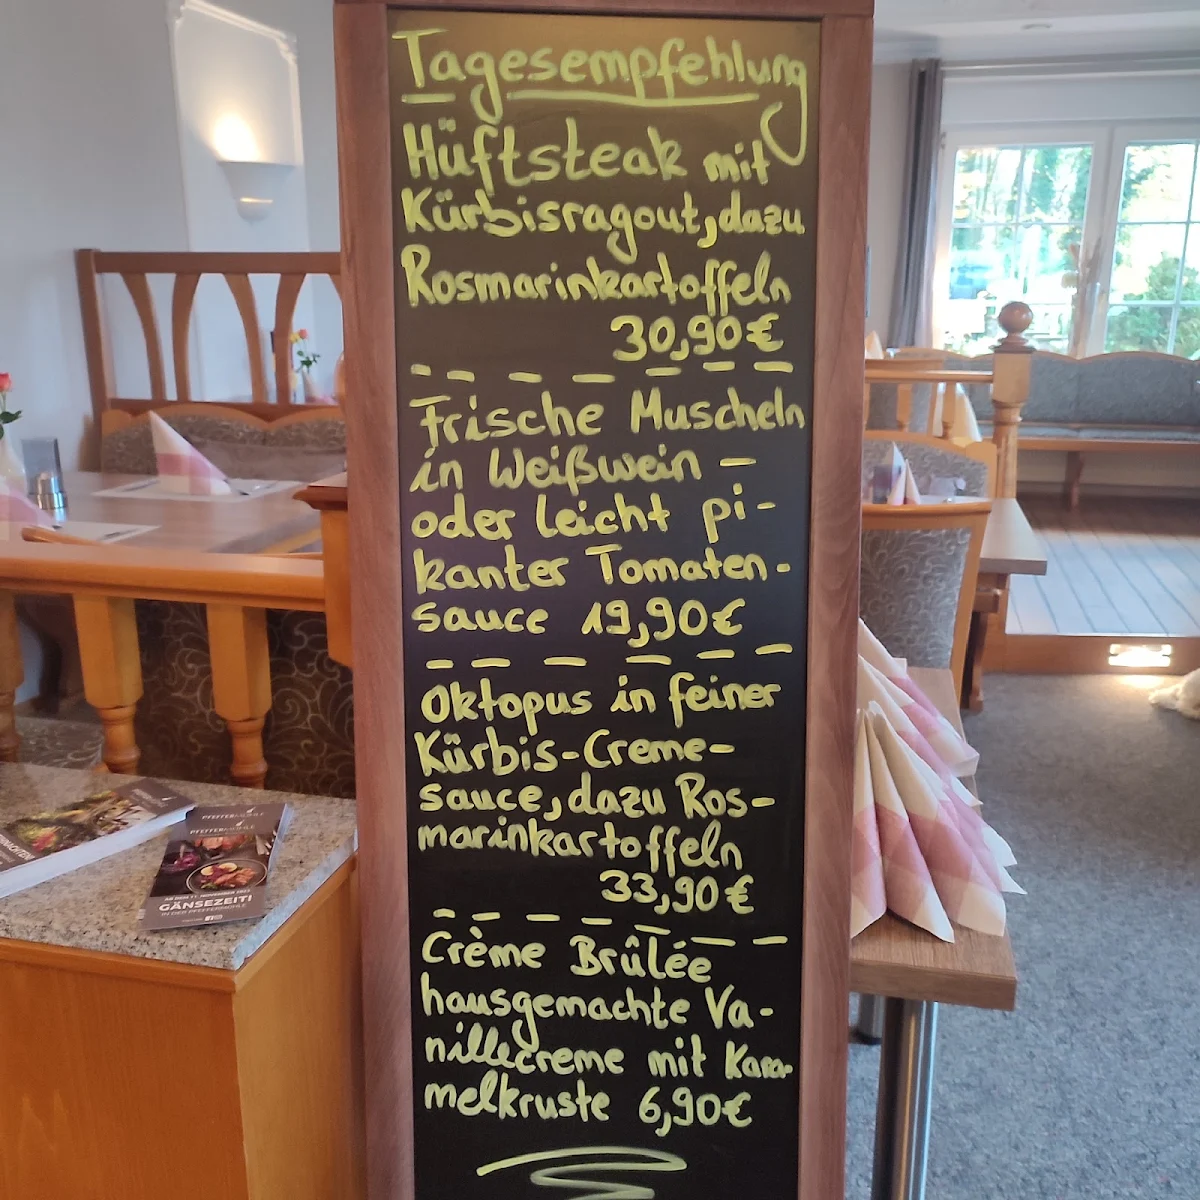 Tagesempfehlung
Hüftsteak mit
Kürbisragout, dazu
Rosmarinkartoffeln
30,90€
Frische Muscheln
in Weißwein –
oder leicht pi-
kanter Tomaten-
sauce 19,90€
Oktopus in feiner
Kürbis-Creme-
sauce, dazu Ros-
marinkartoffeln
33,90€
Crème Brûlée
hausgemachte Va-
nillecreme mit Kara-
melkruste 6,90€
PFEFFERMÜHLE
GÄNSEZEIT!
IN DER PFEFFERMÜHLE